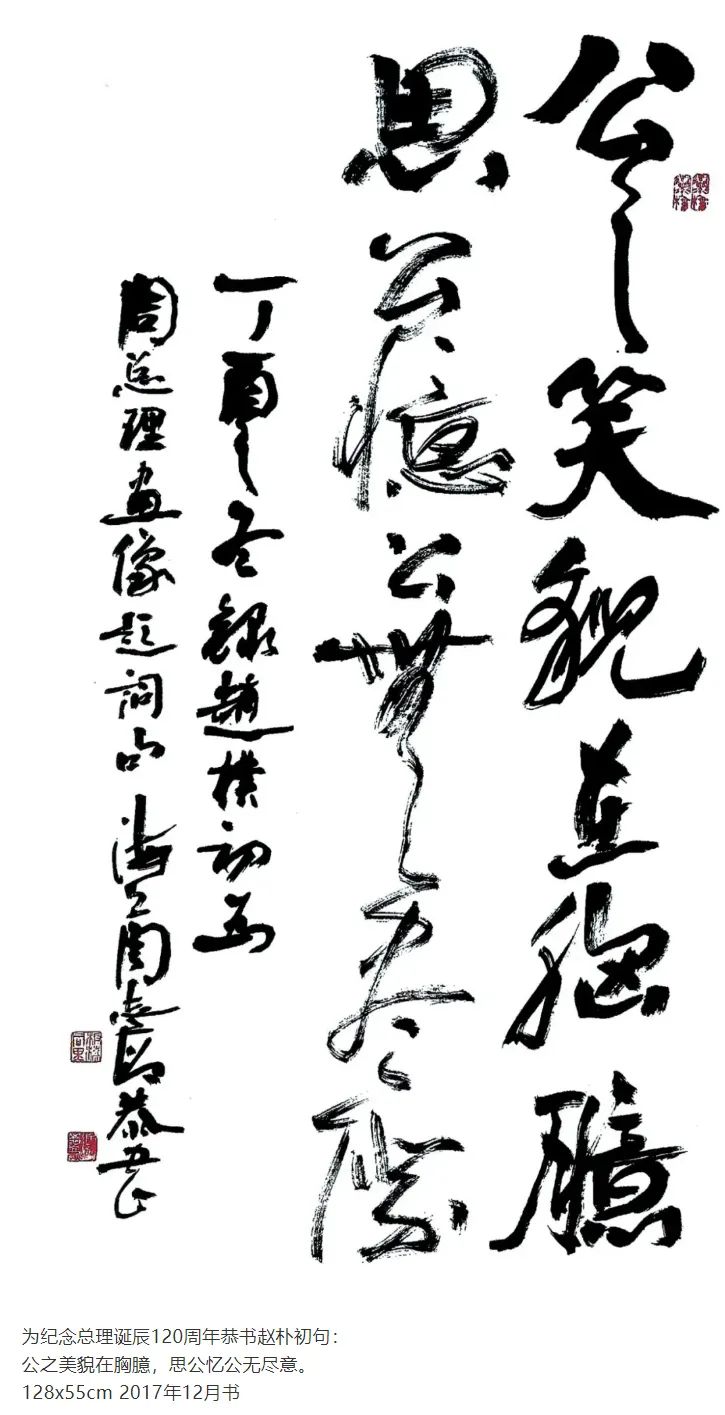 公之笑貌在胸臆
思公憶公無尽際
丁酉之冬錄趙樸初為
周总理畫像題詞 海上周 恭书
为纪念总理诞辰120周年恭书赵朴初句：
公之美貌在胸臆，思公忆公无尽意。
128x55cm 2017年12月书